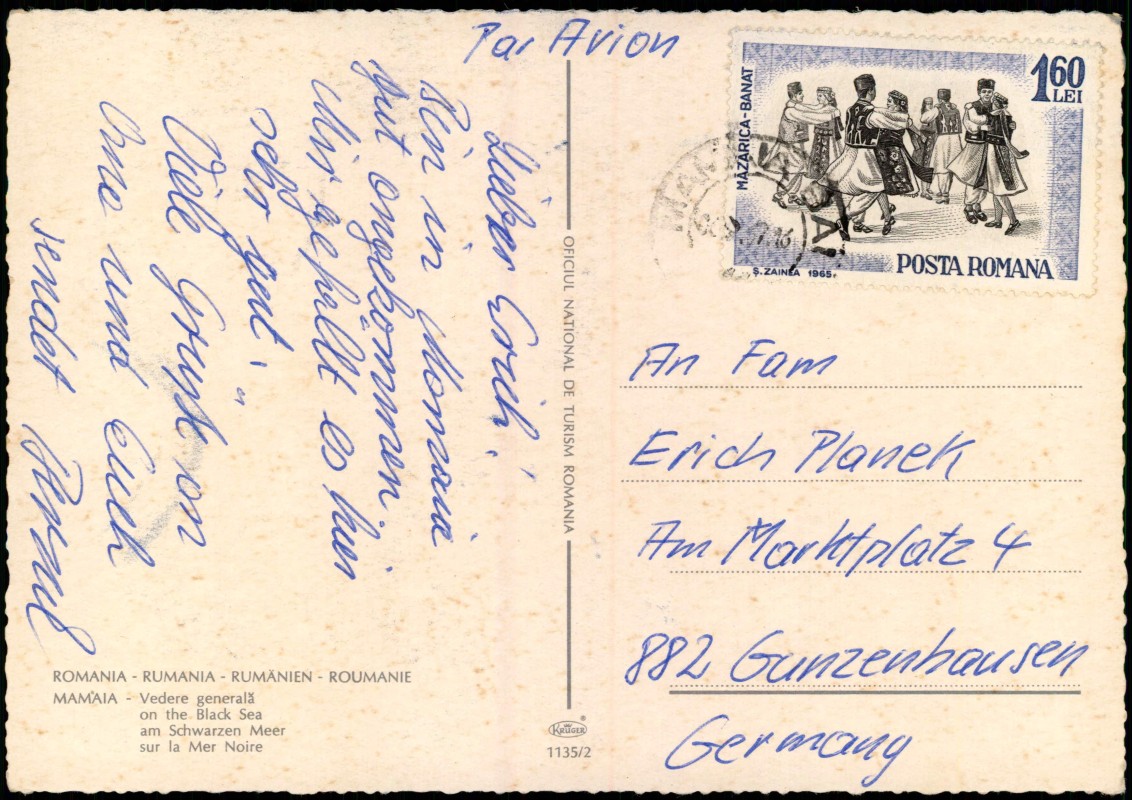 Par Avion
Lieber Erich!
Bin in Mamaia
gut angekommen.
Mir gefällt es hier
sehr gut.
Viele Grüße an
Oma und Euch
sendet
ROMANIA - RUMANIA - RUMÄNIEN - ROUMANIE
MAMAIA - Vedere generală
on the Black Sea
am Schwarzen Meer
sur la Mer Noire
OFICIUL NATIONAL DE TURISM ROMANIA
KRÜGER
1135/2
MĂZĂRICA-BANAT
1 60
LEI
POSTA ROMANA
Ș. ZAINEA 1965
An Fam
Erich Planek
Am Marktplatz 4
882 Gunzenhausen
Germany